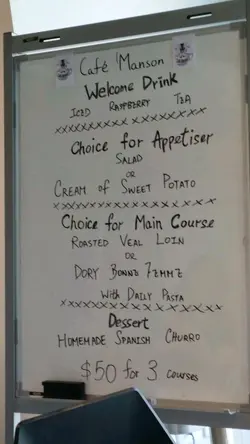 Café 'Manson
Welcome Drink
ICED RASPBERRY TEA
xxxxxxxxxxxxxxxxxxxxxx
Choice for Appetiser
SALAD
OR
CREAM OF SWEET POTATO
xxxxxxxxxxxxxxxxxxxxxx
Choice for Main Course
ROASTED VEAL LOIN
OR
DORY BONNE FEMME
WITH DAILY PASTA
xxxxxxxxxxxxxxxxxxxxxx
Dessert
HOMEMADE SPANISH CHURRO
$50 for 3 COURSES